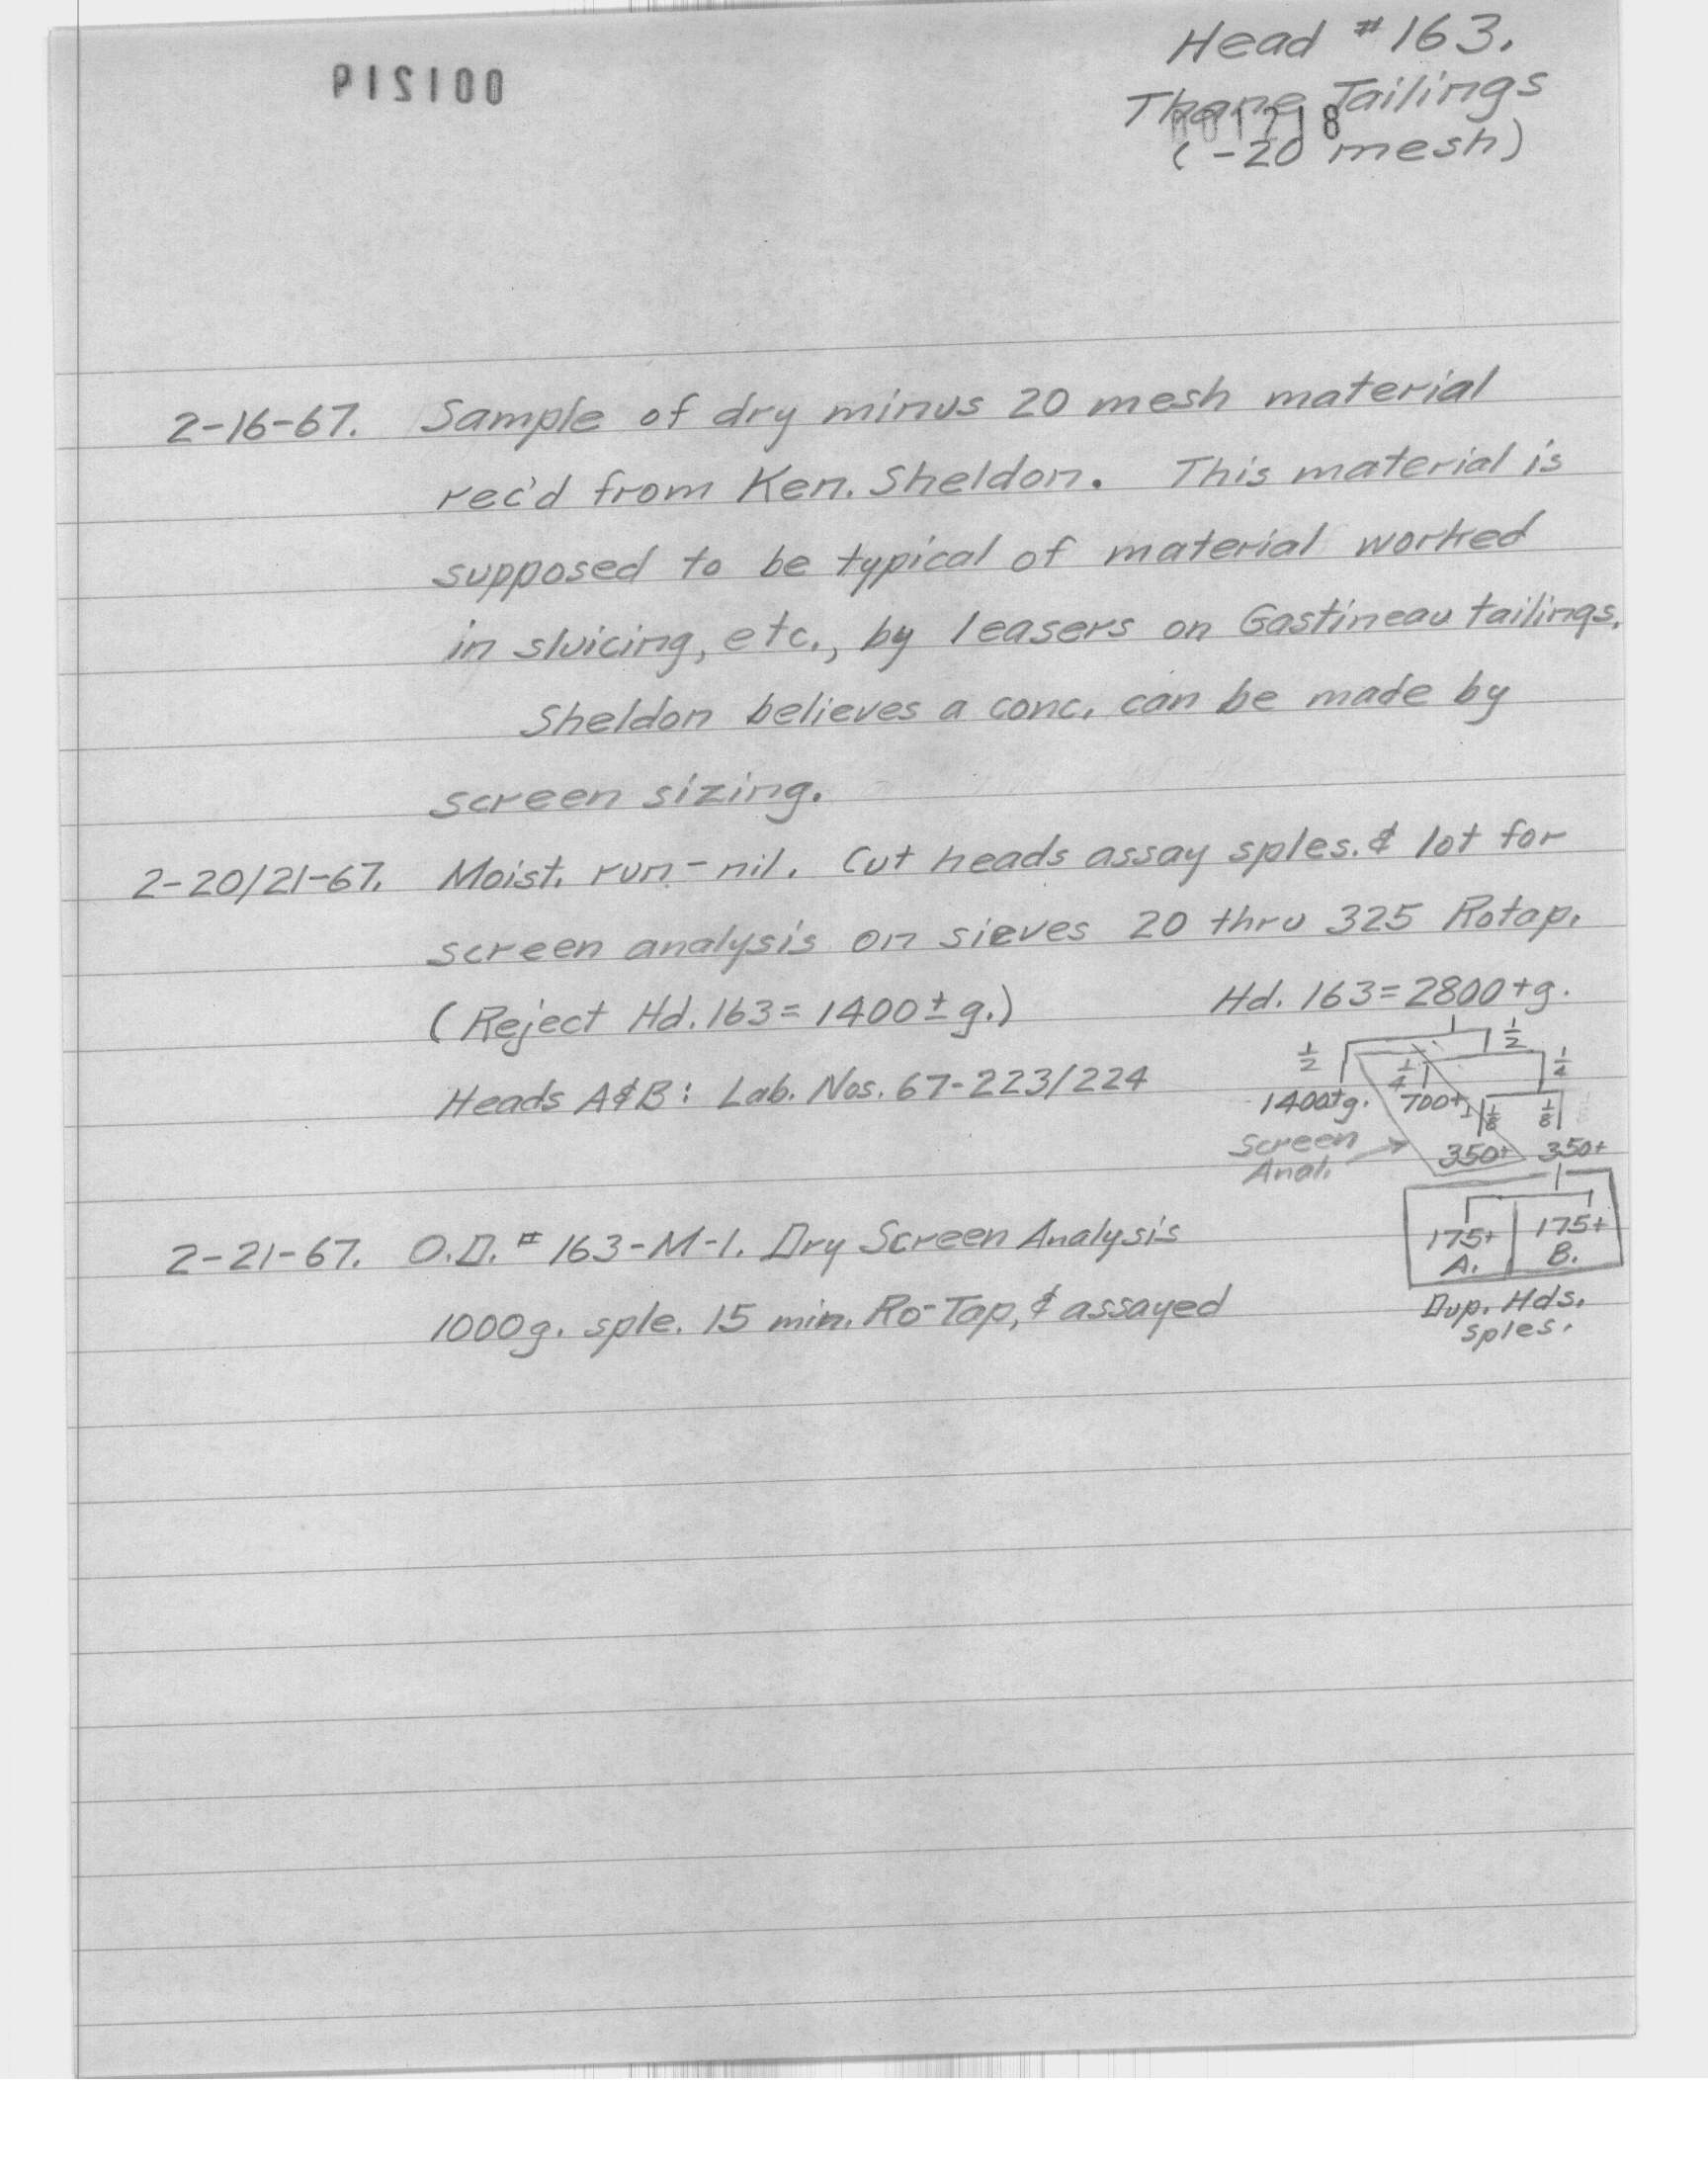 Head #163.
Thane Tailings
001218
(-20 mesh)
2-16-67. Sample of dry minus 20 mesh material
rec'd from Ken. Sheldon. This material is
supposed to be typical of material worked
in sluicing, etc., by leasers on Gastineau tailings.
Sheldon believes a conc. can be made by
screen sizing.
2-20/21-67. Moist. run - nil. Cut heads assay sples. & lot for
screen analysis on sieves 20 thru 325 Rotap.
(Reject Hd. 163 = 1400 ± g.)
Hd. 163 = 2800+g.
1/2 1/2
1/4 1/4
1400+g. 700+ 1/8 1/8
Heads A&B: Lab. Nos. 67-223/224
Screen Anal. → 350+ 350+
175+ A. 175+ B.
Dup. Hds. sples.
2-21-67. O.D. # 163-M-1. Dry Screen Analysis
1000g. sple. 15 min. Ro-Tap, & assayed